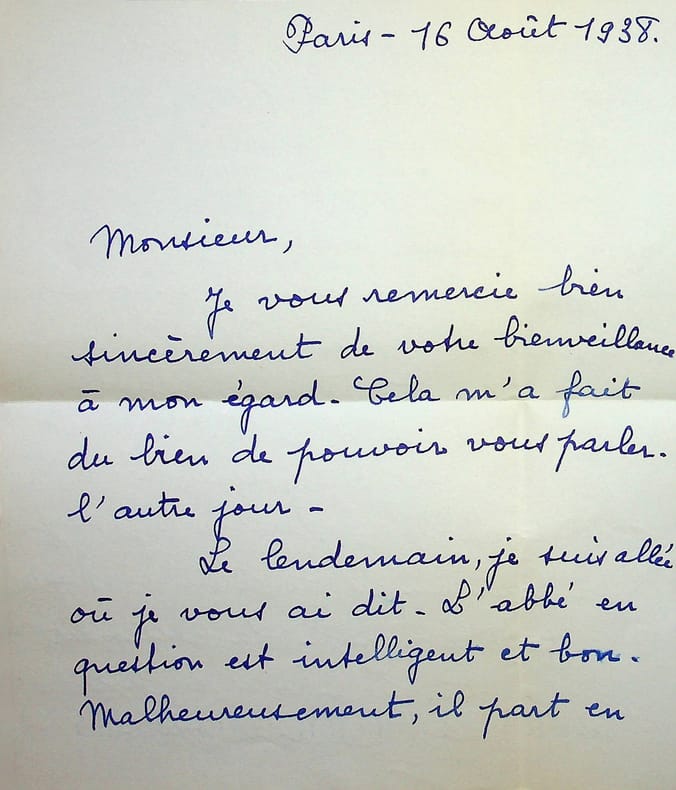 Paris - 16 Août 1938.
Monsieur,
Je vous remercie bien
sincèrement de votre bienveillance
à mon égard. Cela m'a fait
du bien de pouvoir vous parler.
l'autre jour -
Le lendemain, je suis allée
où je vous ai dit. L'abbé en
question est intelligent et bon.
Malheureusement, il part en